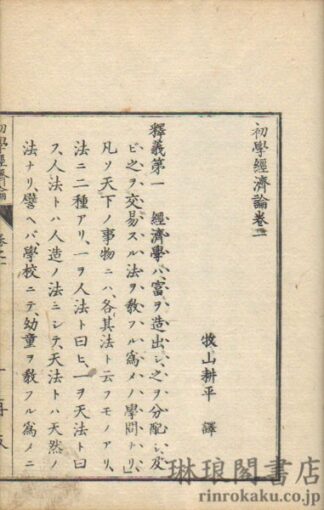 初學經濟論卷一
牧山耕平 譯
釋義第一 經濟學ハ、富ヲ造出シ、之ヲ分配シ、及
ビ之ヲ交易スル法ヲ敎フル爲メノ學問ナリ、
凡ソ天下ノ事物ニハ、各其法ト云フモノアリ、
法ニ二種アリ、一ヲ人法ト曰ヒ、一ヲ天法ト曰
フ、人法トハ人造ノ法ニシテ、天法トハ天然ノ
法ナリ、譬ヘバ、學校ニテ、幼童ヲ敎フル爲メニ
初學經濟論
卷之一
琳琅閣書店
rinrokaku.co.jp